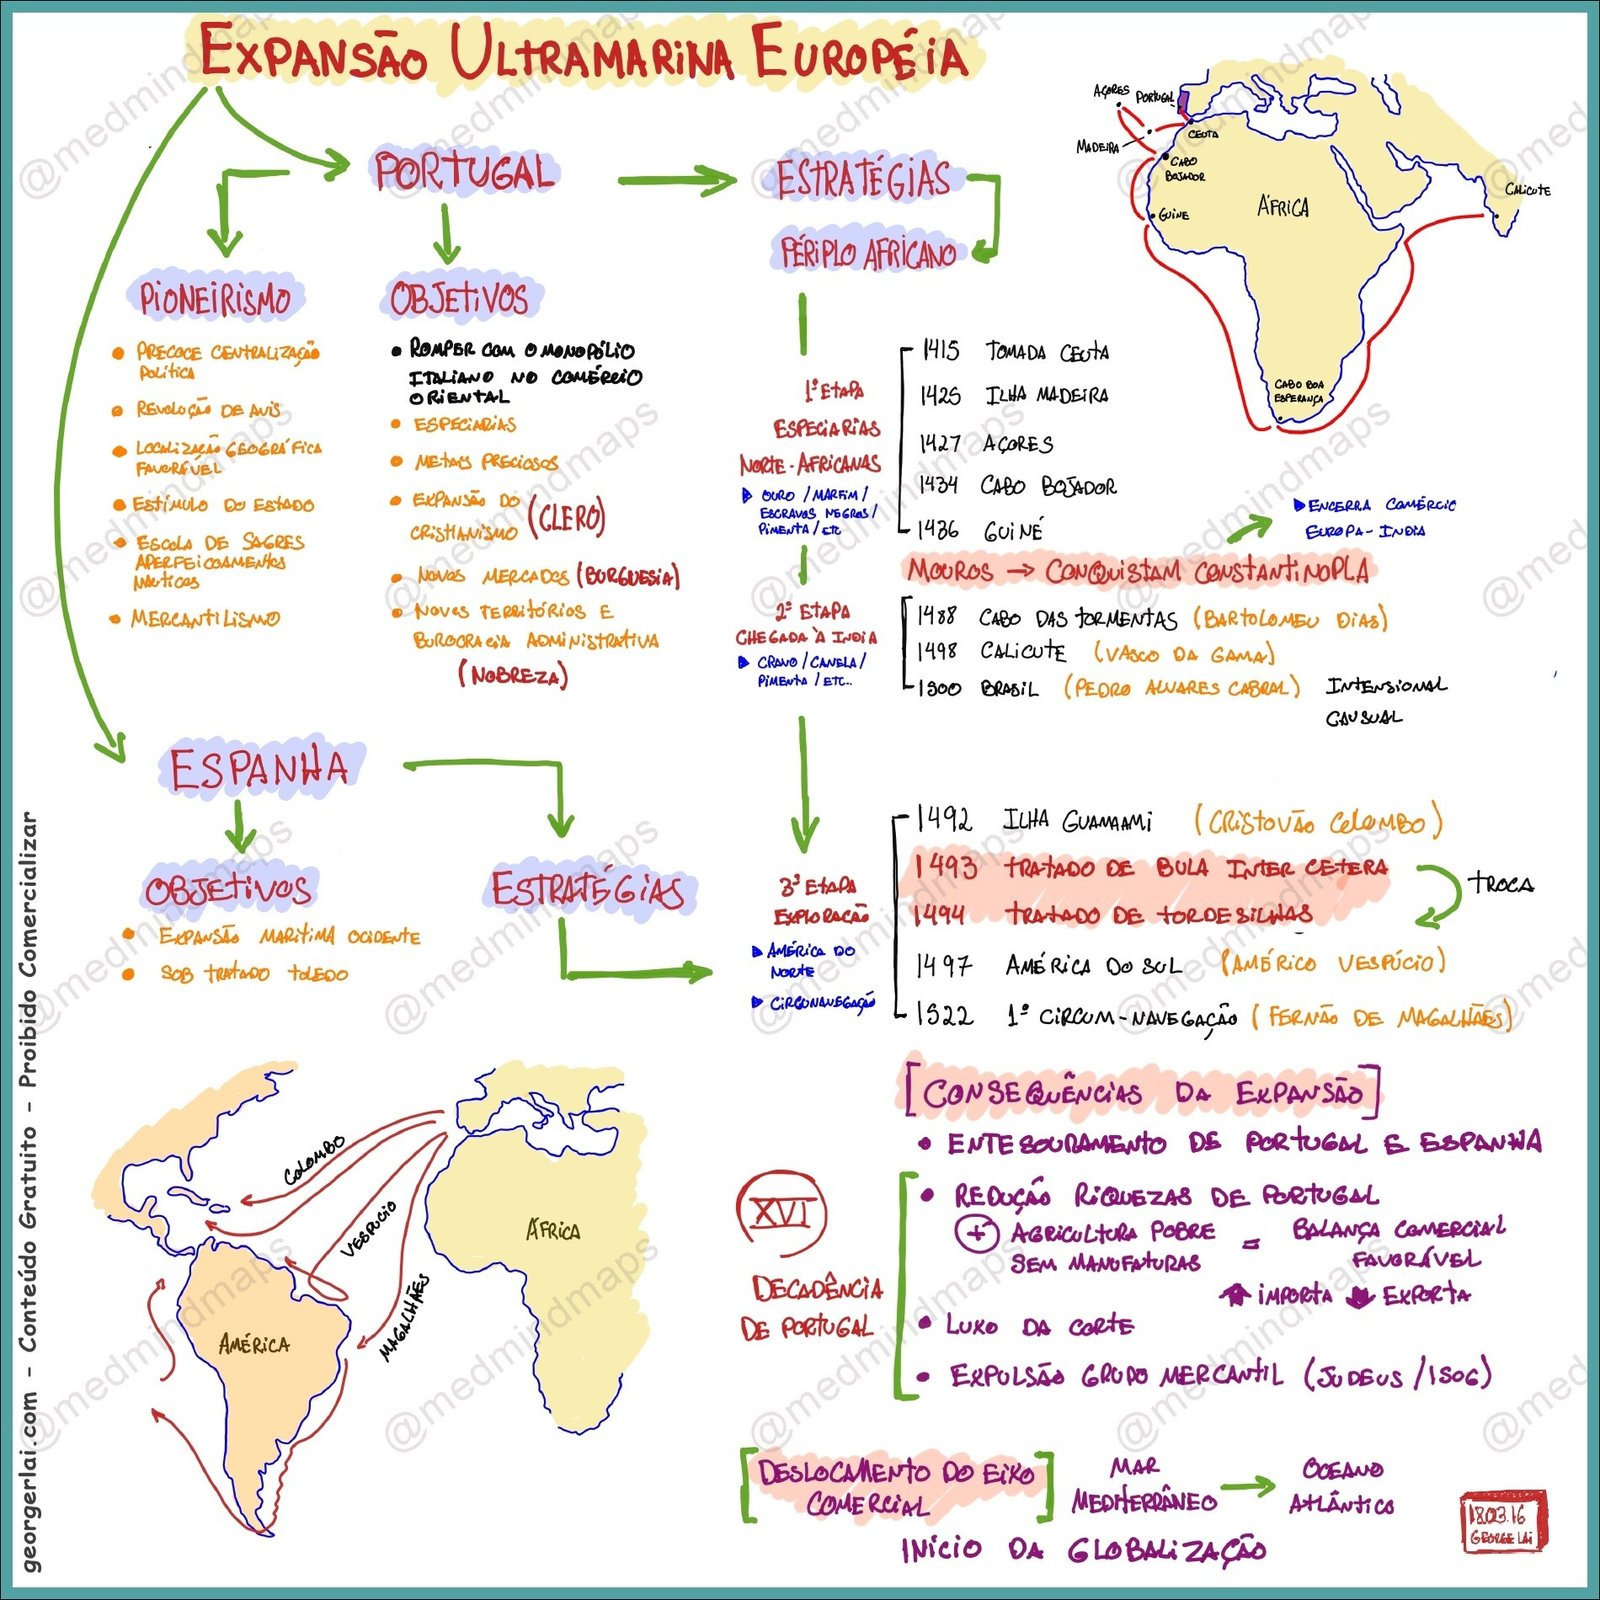 EXPANSÃO ULTRAMARINA EUROPÉIA
PORTUGAL
PIONEIRISMO
PRECOCE CENTRALIZAÇÃO
POLÍTICA
REVOLUÇÃO DE AVIS
LOCALIZAÇÃO GEOGRÁFICA
FAVORÁVEL
ESTÍMULO DO ESTADO
ESCOLA DE SAGRES
APERFEICOAMENTOS
NAUTICOS
MERCANTILISMO
OBJETIVOS
ROMPER COM O MONOPÓLIO
ITALIANO NO COMÉRCIO
ORIENTAL
ESPECIARIAS
METAIS PRECIOSOS
EXPANSÃO DO
CRISTIANISMO (CLERO)
NOVOS MERCADOS (BURGUESIA)
NOVOS TERRITÓRIOS E
BUROCRACIA ADMINISTRATIVA
(NOBREZA)
ESTRATÉGIAS
PÉRIPLO AFRICANO
1ª ETAPA
ESPECIARIAS
NORTE-AFRICANAS
OURO / MARFIM /
ESCRAVOS NEGROS /
PIMENTA / ETC
1415 TOMADA CEUTA
1425 ILHA MADEIRA
1427 AÇORES
1434 CABO BOJADOR
1436 GUINÉ
MOUROS → CONQUISTAM CONSTANTINOPLA
ENCERRA COMÉRCIO
EUROPA-INDIA
2ª ETAPA
CHEGADA À INDIA
CRAVO / CANELA /
PIMENTA / ETC..
1488 CABO DAS TORMENTAS (BARTOLOMEU DIAS)
1498 CALICUTE (VASCO DA GAMA)
1500 BRASIL (PEDRO ALVARES CABRAL) INTENSIONAL
CAUSUAL
AÇORES
PORTUGAL
MADEIRA
CEUTA
CABO
BOJADOR
GUINE
ÁFRICA
CALICUTE
CABO BOA
ESPERANÇA
ESPANHA
OBJETIVOS
EXPANSÃO MARITIMA OCIDENTE
SOB TRATADO TOLEDO
ESTRATÉGIAS
3ª ETAPA
EXPLORAÇÃO
AMÉRICA DO
NORTE
CIRCUNAVEGAÇÃO
1492 ILHA GUANAAMI (CRISTOVÃO COLOMBO)
1493 TRATADO DE BULA INTER CETERA
1494 TRATADO DE TORDESILHAS
TROCA
1497 AMÉRICA DO SUL (AMÉRICO VESPÚCIO)
1522 1ª CIRCUM-NAVEGAÇÃO (FERNÃO DE MAGALHÃES)
COLOMBO
VESPUCIO
MAGALHÃES
AMÉRICA
ÁFRICA
[CONSEQUÊNCIAS DA EXPANSÃO]
ENTESOURAMENTO DE PORTUGAL E ESPANHA
XVI
DECADÊNCIA
DE PORTUGAL
REDUÇÃO RIQUEZAS DE PORTUGAL
+ AGRICULTURA POBRE
SEM MANUFATURAS
= BALANÇA COMERCIAL
FAVORÁVEL
IMPORTA EXPORTA
LUXO DA CORTE
EXPULSÃO GRUPO MERCANTIL (JUDEUS / 1506)
[DESLOCAMENTO DO EIXO
COMERCIAL]
MAR
MEDITERRÂNEO
→ OCEANO
ATLÂNTICO
INÍCIO DA GLOBALIZAÇÃO
18.03.16
GEORGE LAI
georgerlai.com - Conteúdo Gratuito - Proibido Comercializar
@medmindmaps